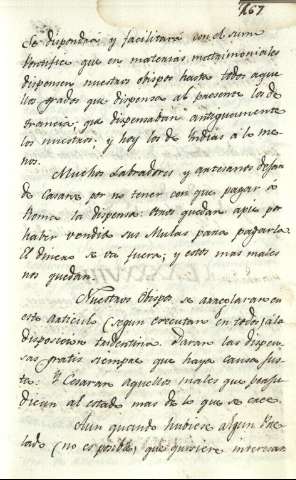 167
Se dispondrá y facilitará con el sumo
Pontifice que en materias matrimoniales
dispensen nuestros obispos hasta todos aque
llos grados que dispensa al presente los de
Francia; que dispensaban antiguamente
los nuestros; y hoy los de Indias a lo me
nos.
Muchos Labradores y artesanos dejan
de Casarse por no tener con que pagar á
Roma la dispensa. Otros quedan apie por
haber vendido sus Mulas para pagarla
El dinero se vá fuera; y estos mas males
nos quedan.
Nuestros Obispos se arreglaran en
este articulo (segun executan en todo) á la
disposicion tridentina. Daran las dispen
sas gratis siempre que haya causa jus
ta. Y Cesaran aquellos males que perju
dican al estado mas de lo que se cree.
Aun quando hubiese algun Pre
lado (no es posible) que quisiere interesar